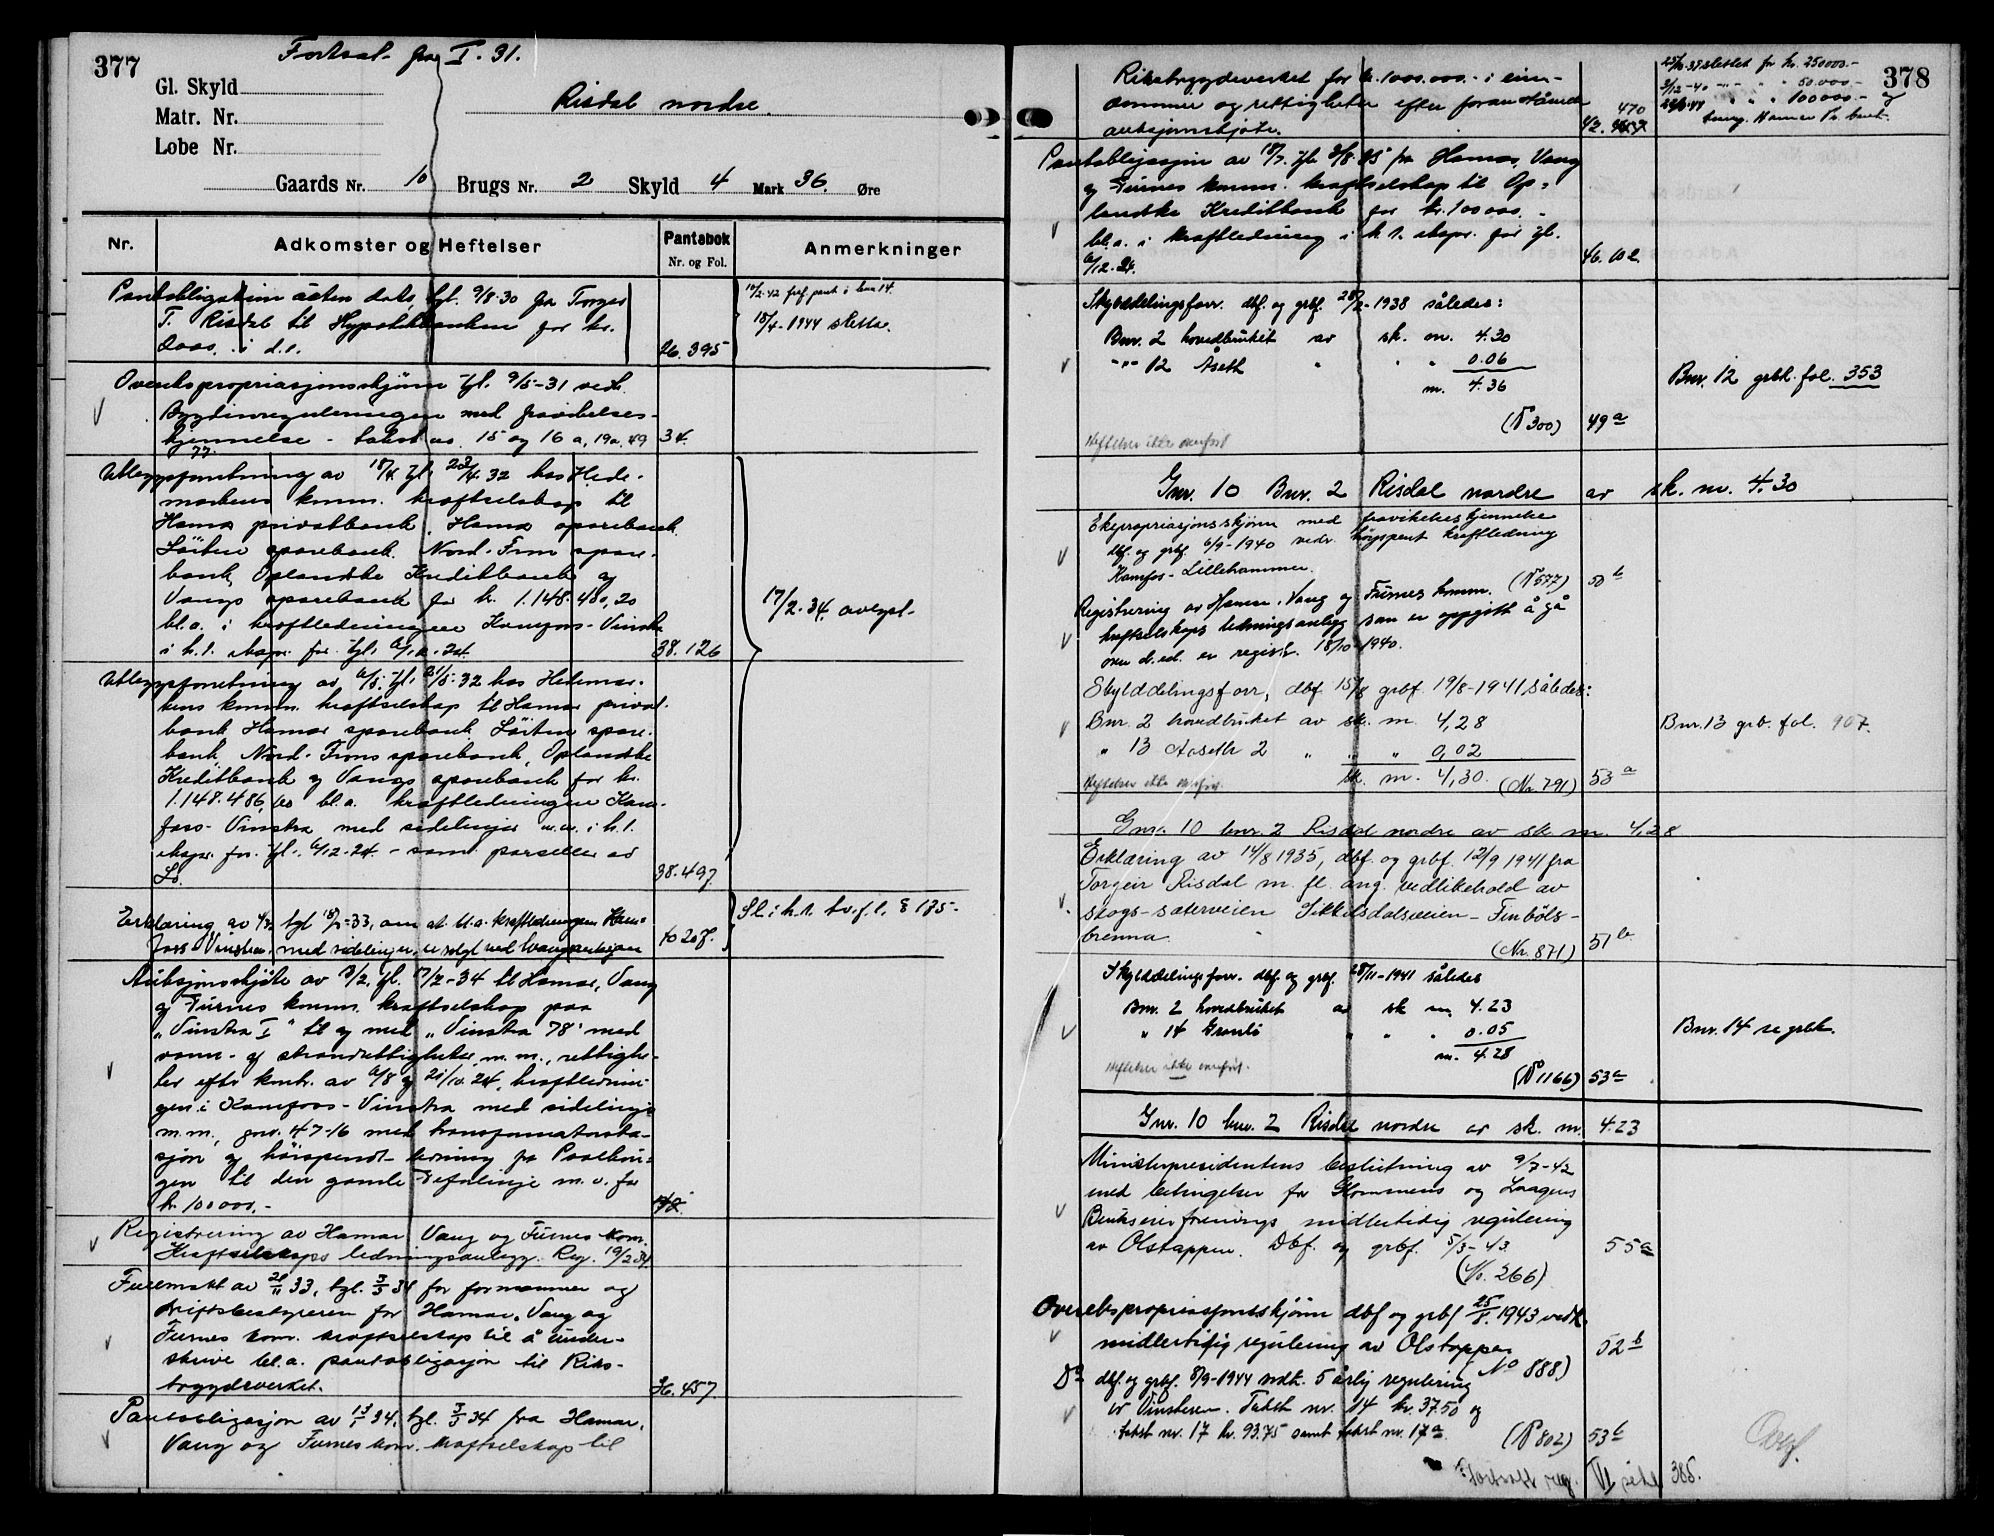 377
Fortsat fra I. 31.
Gl. Skyld
Matr. Nr.
Løbe Nr.
Risdal nordre.
Gaards Nr. 10 Brugs Nr. 2 Skyld 4 Mark 36. Øre
Nr. Adkomster og Heftelser Pantebok Nr. og Fol. Anmerkninger
Pantobligation uten dato, tgl. 9/8-30 fra Torger
T. Risdal til Hypotekbanken for kr.
i d.e. 26.395
18/4-1944 slettet.
Overekspropriasjonsskjønn tgl. 9/5-31 vedk.
Bygdinreguleringen med fravikelses-
kjennelse - takst nr. 15 og 16 a, 19a, 49 34.
77.
Utleggsforretning av 18/4 tgl. 23/4.32 hos Hede-
markens komm. kraftselskap til
Hamar privatbank, Hamar sparebank,
Löiten sparebank, Nord-Fron spare-
bank, Oplandske Kreditbank og
Vangs sparebank for kr. 1.148.480,20
bl.a. i kraftledningen Kamfoss-Vinstra
i h.t. ekspr. for. tgl. 6/12.24. 38.126
17/2.34. avlyst.
Utleggsforretning av 6/5. tgl. 21/5.32 hos Hedemar-
kens komm. kraftselskap til Hamar privat-
bank, Hamar sparebank, Löiten spare-
bank, Nord-Frons sparebank, Oplandske
Kreditbank og Vangs sparebank for kr.
1.148.486,60 bl.a. kraftledningen Kam-
foss-Vinstra med sidelinjer m.v. i h.t.
ekspr. for. tgl. 6/12-24. - samt parseller av
Lö. 38.497.
Erklæring av tgl 18/ -33, om at bl.a. kraftledningen Kam-
foss-Vinstra, med sidelinjer, er solgt ved tvangsauksjon 40.207.
Sl. i h.t. tv.f.l. § 175.
Auksjonsskjöte av 13/2, tgl. 17/2-34 til Hamar, Vang
og Furnes komm. kraftselskap paa
"Vinstra I" til og med "Vinstra 78" med
vann- og strandrettigheter m.m., rettighe-
ter efter kontr. av 6/8 og 21/10.24, kraftlednin-
gen i Kamfoss-Vinstra med sidelinje
m.m., gnr. 47-16 med transformatorsta-
sjon og höispendt-ledning fra Paalhau-
gen til den gamle Tefalinje m.v. for
kr. 100000.-
Registrering av Hamar Vang og Furnes kom.
Kraftselskaps ledningsanlegg. Reg. 19/2 34
Fullmakt av 21/11 33, tgl. 3/3 34 for formannen og
driftsbestyreren for Hamar, Vang og
Furnes kom. kraftselskap til å under-
skrive bl.a. pantobligasjon til Riks-
trygdeverket. 36.457.
Pantobligasjon av 13/1 34, tgl. 3/3 34 fra Hamar,
Vang og Furnes kom. kraftselskap til
378
Rikstrygdeverket for kr. 1000.000.- i eien-
dommer og rettigheter efter foranstående
auksjonsskjøte. 470
42.
slettet for kr. 250000.-
2/12-40 -"- " " 50.000.-
" " " 100000.- og
Pantobligasjon av 18/7. tgl. 3/8.35 fra Hamar, Vang
og Furnes komm. kraftselskap til Op-
landske Kreditbank for kr. 100000.-
bl.a. i kraftledning i h.t. ekspr. for. tgl.
6/12.24. 46.102
Skylddelingsforr. dbf. og grbf. 28/2-1938 således:
Bnr. 2 hovedbruket av sk. m. 4.30
-"- 12 Åseth " " " 0.06
m. 4.36
(No 300) 49a
Heftelser ikke overført
Bnr. 12 grbk. fol. 353
Gnr. 10 Bnr. 2 Risdal nordre av sk. m. 4.30
Ekspropriasjonsskjønn med fravikelseskjennelse
dbf. og grbf. 6/9-1940 vedr. høyspent kraftledning
Kamfos-Lillehammer. (No 577) 50b
Registrering av Hamar, Vang og Furnes komm.
kraftselskaps ledningsanlegg som er oppgitt å gå
over d.ed. er registr. 18/10-1940.
Skylddelingsforr, dbf 15/8 grbf. 19/8-1941 således:
Bnr. 2 hovedbruket av sk. m. 4,28
" 13 Aaseth 2 " " " 0,02
sk. m. 4,30. (Nr. 791) 53a
Heftelser ikke overført.
Bnr. 13 grb. fol. 907.
Gnr. 10 bnr. 2 Risdal nordre av sk. m. 4,28
Erklæring av 14/8 1935, dbf. og grbf. 12/9 1941 fra
Torgeir Risdal m. fl. ang. vedlikehold av
skogs-sæterveien Sikkilsdalsveien - Finböls-
brenna. (Nr. 871) 51b
Skylddelingsforr. dbf og grbf. 28/11-1941 således
Bnr. 2 hovedbruket av sk m. 4.23
" 14 Grønli " " " 0.05
m. 4.28
Heftelser ikke overført. (No 1166) 53a
Bnr. 14 se grbk.
Gnr. 10 bnr. 2 Risdal nordre av sk. m. 4.23
Ministerpresidentens beslutning av 9/7-42
med betingelser for Glommens og Laagens
Brukseierforenings midlertidig regulering
av Olstappen. Dbf. og grbf. 5/3-43.
(No. 266) 55a
Overekspropriasjonsskjönn dbf og grbf 25/8. 1943 vedk.
midlertidig regulering av Olstappen 52b
(No 888)
Do dbf. og grbf. 8/9-1944 vedk. 5 årlig regulering
av Vinsteren. Takst nr. 14 kr. 37.50 og
takst nr. 17 kr. 93.75 samt takst nr. 17a. (No 802) 53b
Fortsatt reg. VI side 385.
Ovf.